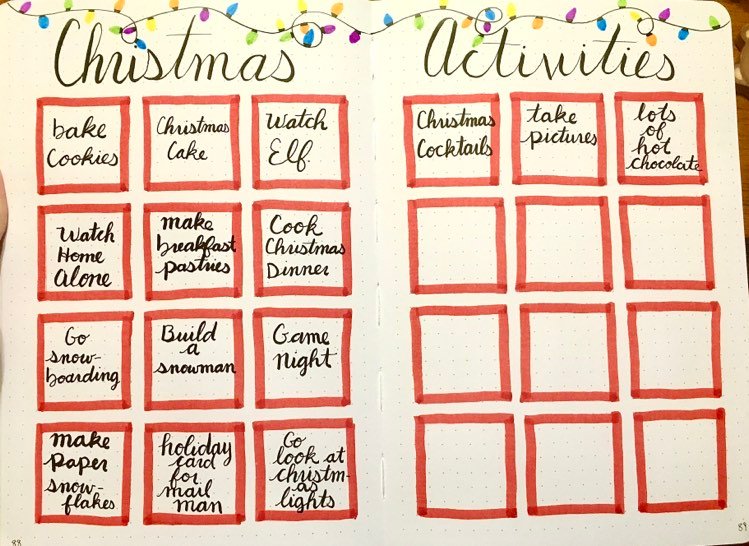 Christmas Activities
bake
Cookies
Christmas
Cake
Watch
Elf.
Watch
Home
Alone
make
breakfast
pastries
Cook
Christmas
Dinner
Go
snow-
boarding
Build
a
snowman
Game
Night
make
paper
snow-
flakes
holiday
card
for
mail
man
Go
look at
christm-
as
lights
88
Christmas
Cocktails
take
pictures
lots
of
hot
chocolate
89